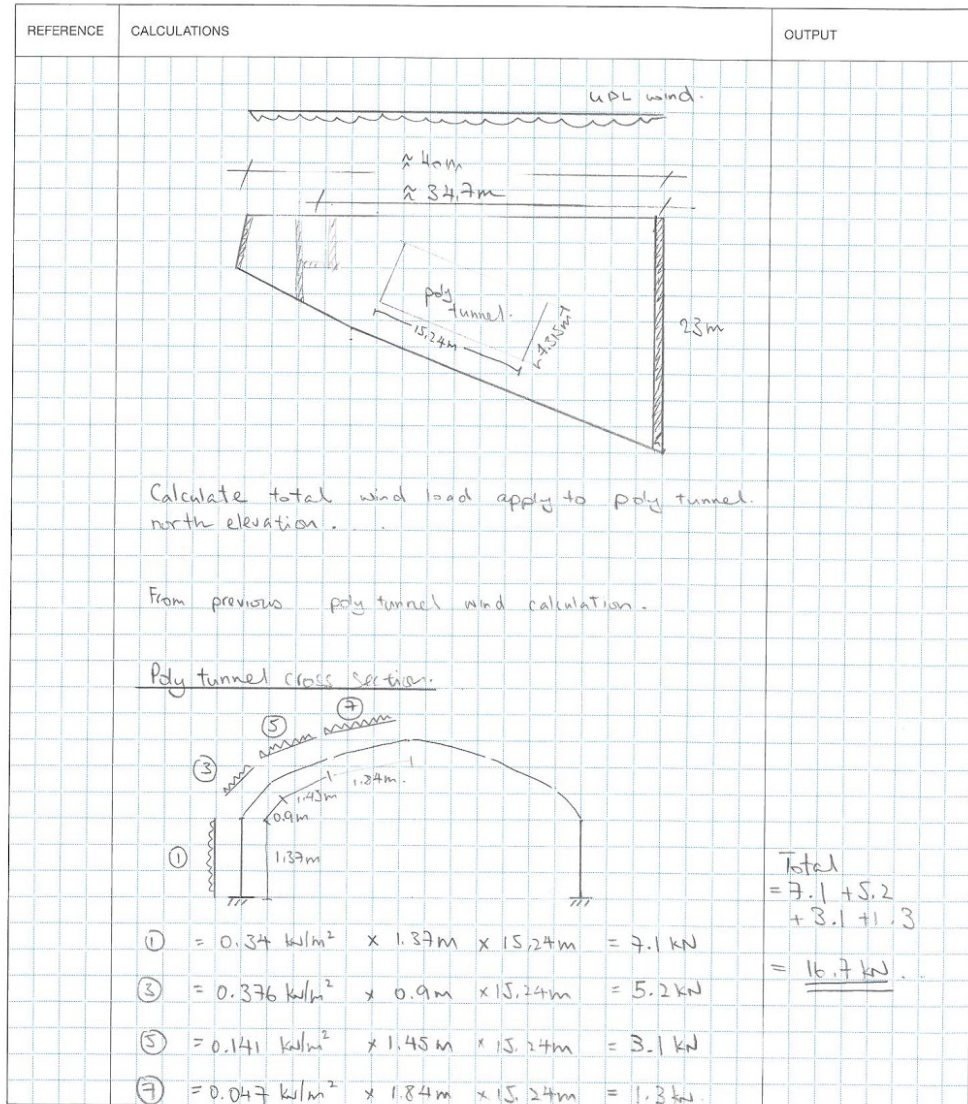 REFERENCE
CALCULATIONS
OUTPUT
UDL wind.
≈ 40m
≈ 34,7m
poly
tunnel.
15,24m
7.315m
23m
Calculate total wind load apply to poly tunnel.
north elevation. . . .
From previous poly tunnel wind calculation.
Poly tunnel cross section.
⑦
⑤
③
1.84m.
1.45m
0.9m
①
1.37m
Total
= 7.1 + 5.2
+ 3.1 + 1.3
= 16.7 kN . .
① = 0.34 kN/m² x 1.37m x 15,24m = 7.1 kN
③ = 0.376 kN/m² x 0.9m x 15.24m = 5.2 kN
⑤ = 0.141 kN/m² x 1.45m x 15.24m = 3.1 kN
⑦ = 0.047 kN/m² x 1.84m x 15.24m = 1.3 kN.